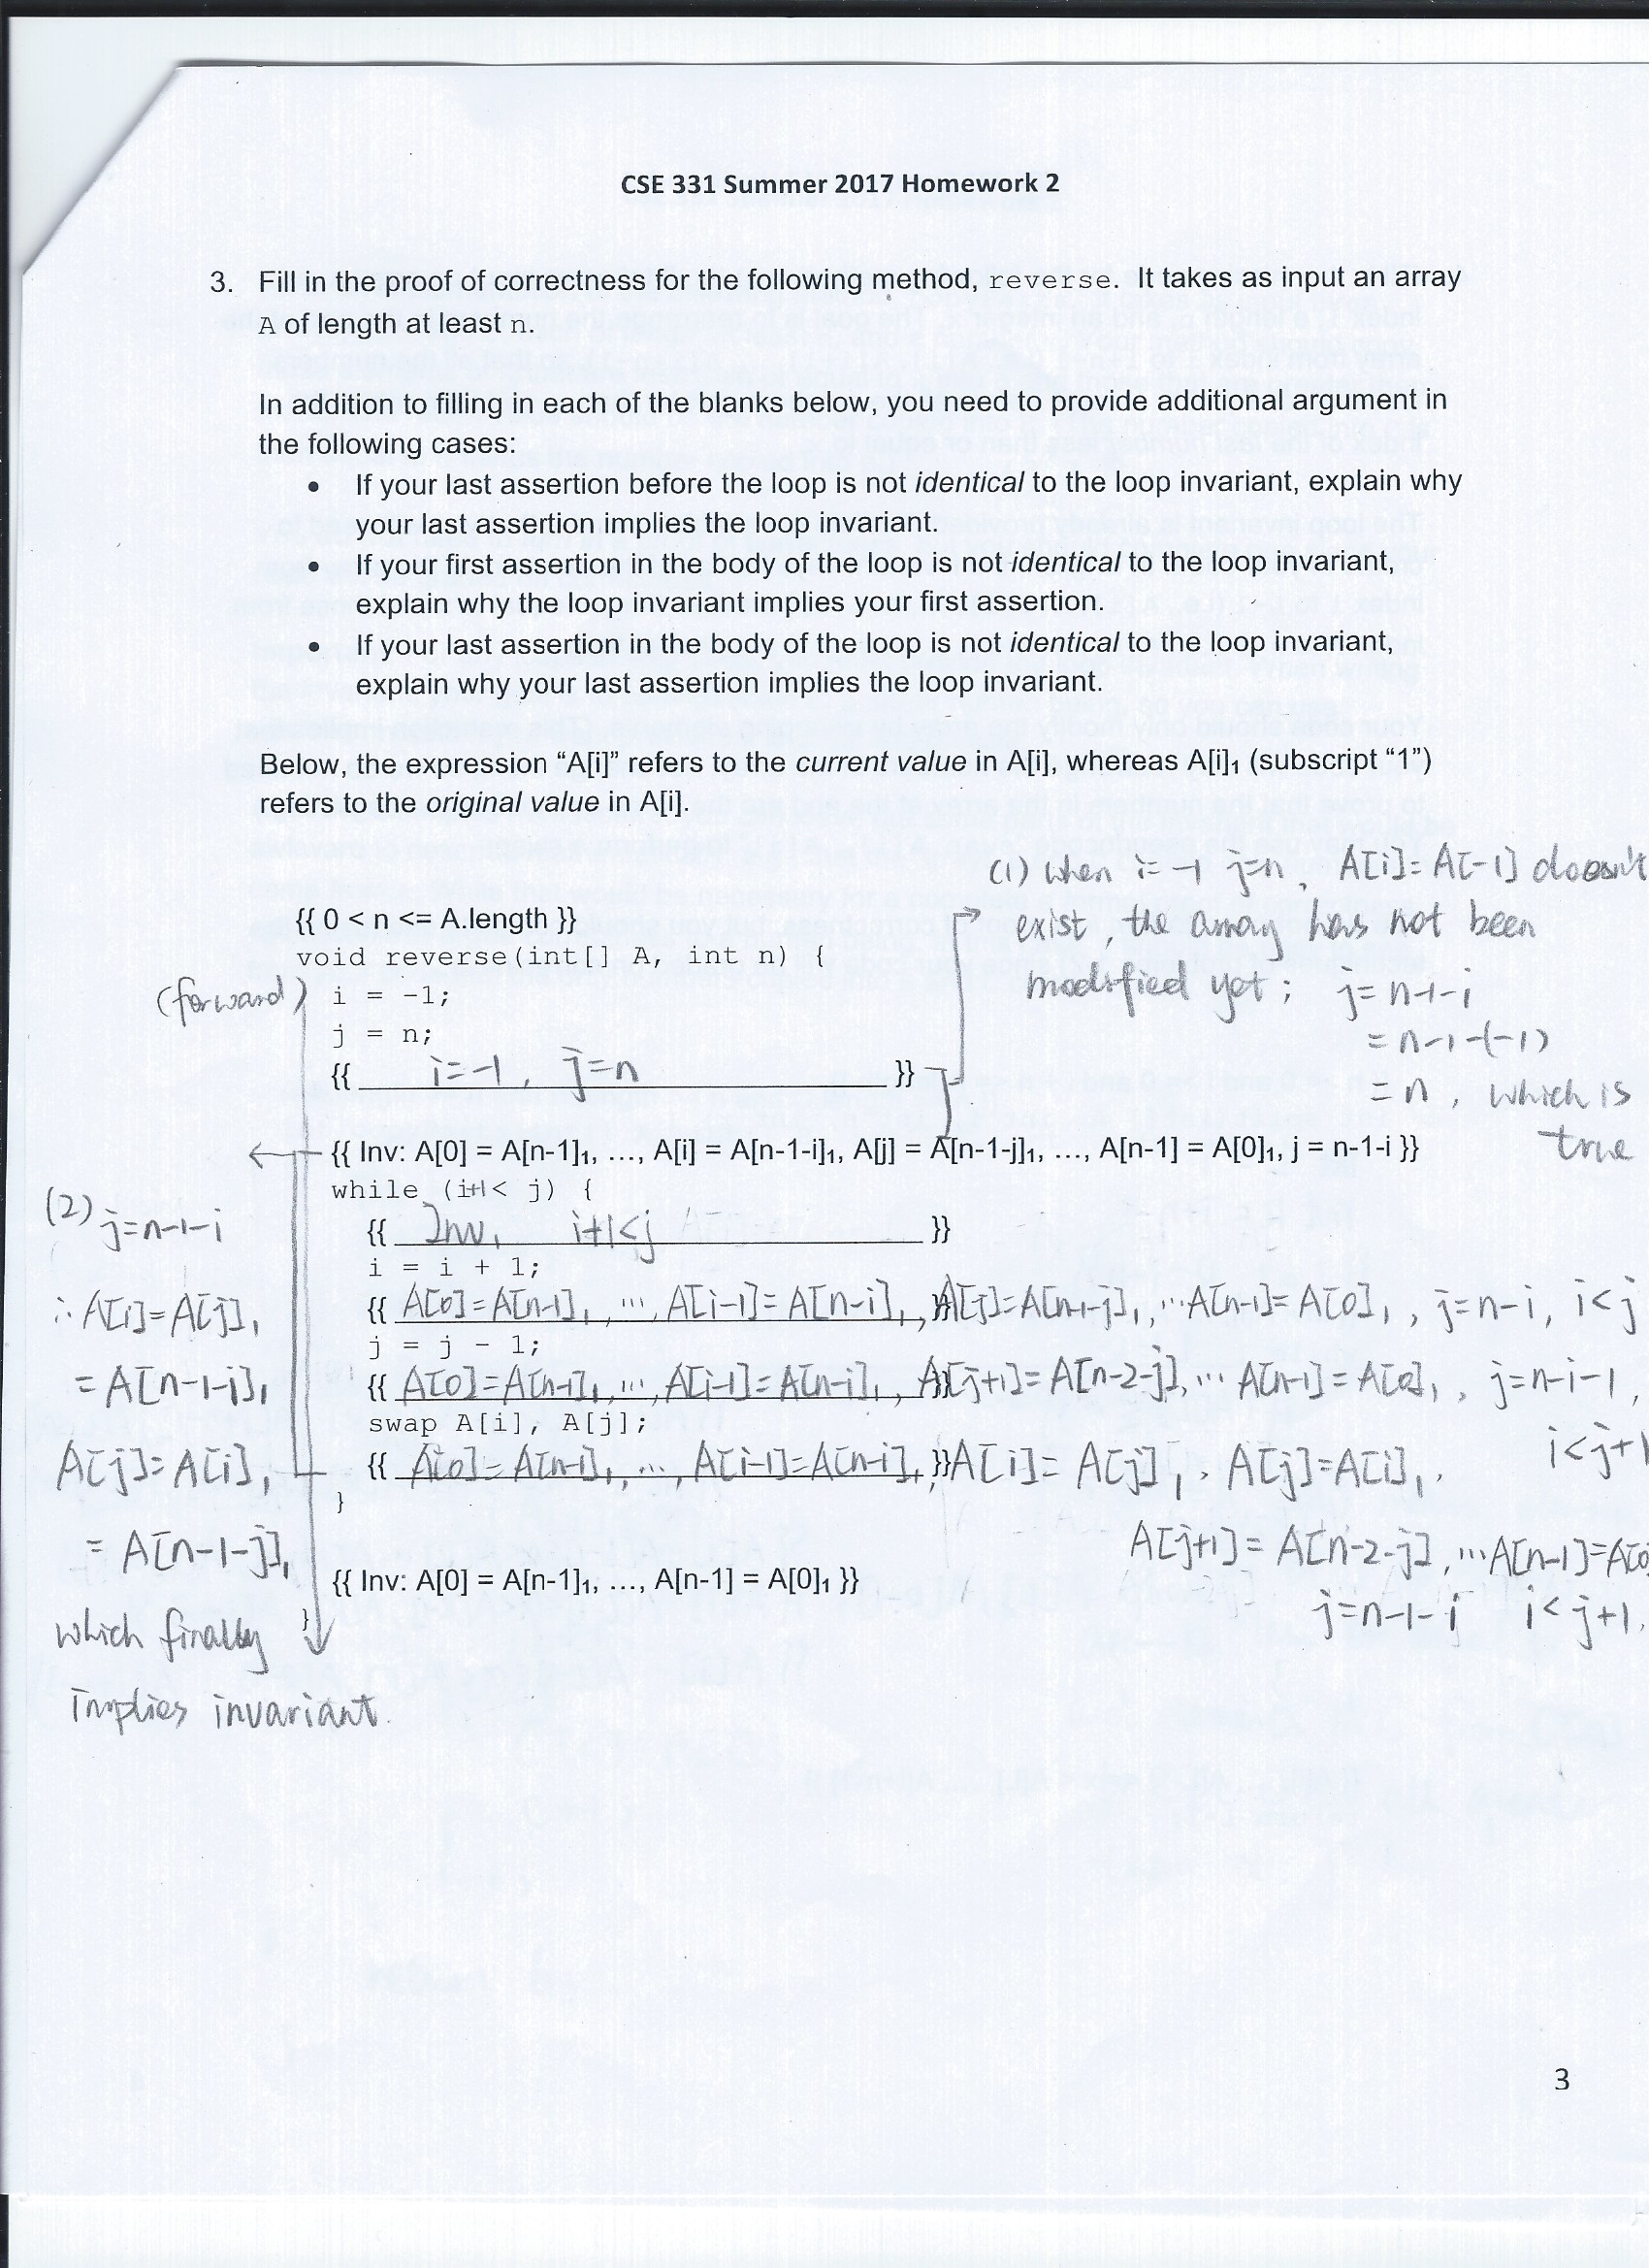 CSE 331 Summer 2017 Homework 2
3. Fill in the proof of correctness for the following method, reverse. It takes as input an array
A of length at least n.
In addition to filling in each of the blanks below, you need to provide additional argument in
the following cases:
• If your last assertion before the loop is not identical to the loop invariant, explain why
your last assertion implies the loop invariant.
• If your first assertion in the body of the loop is not identical to the loop invariant,
explain why the loop invariant implies your first assertion.
• If your last assertion in the body of the loop is not identical to the loop invariant,
explain why your last assertion implies the loop invariant.
Below, the expression “A[i]” refers to the current value in A[i], whereas A[i]₁ (subscript “1”)
refers to the original value in A[i].
(1) when i=-1 j=n, A[i]=A[-1] doesn't
exist, the array has not been
modified yet; j=n-1-i
=n-1-(-1)
=n, which is
true
{{ 0 < n <= A.length }}
void reverse(int[] A, int n) {
(forward)
i = -1;
j = n;
{{ i=-1, j=n }}
{{ Inv: A[0] = A[n-1]₁, ..., A[i] = A[n-1-i]₁, A[j] = A[n-1-j]₁, ..., A[n-1] = A[0]₁, j = n-1-i }}
while (i+1< j) {
{{ Inv, i+1<j }}
i = i + 1;
{{ A[0]=A[n-1]₁, ..., A[i-1]=A[n-i]₁, }} A[j]=A[n-1-j]₁, ...A[n-1]=A[0]₁, j=n-i, i<j
j = j - 1;
{{ A[0]=A[n-1]₁, ..., A[i-1]=A[n-i]₁, }} A[j+1]=A[n-2-j]₁ ... A[n-1]=A[0]₁, j=n-i-1,
i<j+1
swap A[i], A[j];
{{ A[0]=A[n-1]₁, ..., A[i-1]=A[n-i]₁, }} A[i]=A[j]₁, A[j]=A[i]₁,
A[j+1]=A[n-2-j]₁ ...A[n-1]=A[0]
j=n-1-i i<j+1.
}
{{ Inv: A[0] = A[n-1]₁, ..., A[n-1] = A[0]₁ }}
}
(2) j=n-1-i
∴A[i]=A[j]₁
=A[n-1-i]₁
A[j]=A[i]₁
=A[n-1-j]₁
which finally
implies invariant.
3